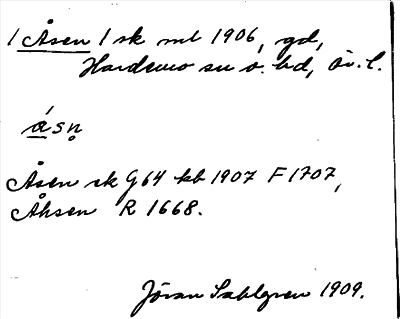 1 Åsen 1 sk ml 1906, gd,
Hardemo sn o. hd, Ör. l.
ásn̥
Åsen sk G64 kb 1907 F 1707,
Åhsen R 1668.
Jöran Sahlgren 1909.